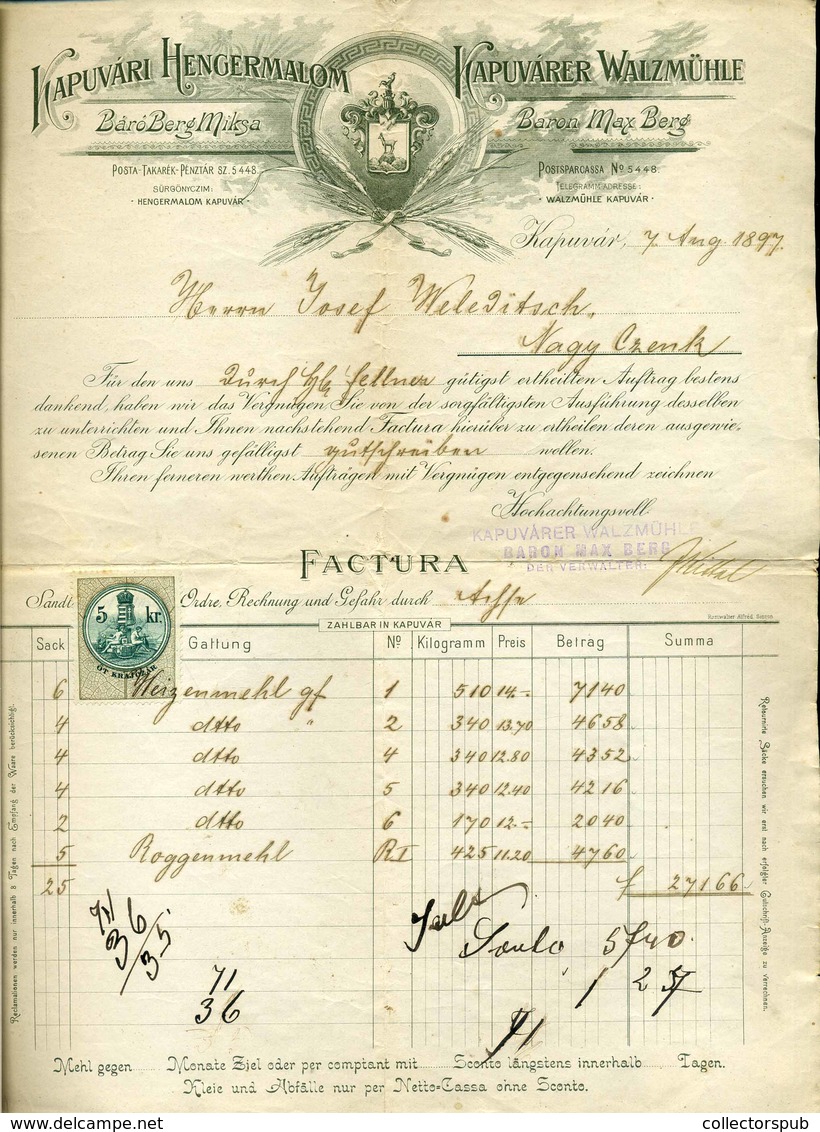 KAPUVÁRI HENGERMALOM
BáróBergMiksa
POSTA-TAKARÉK-PÉNZTÁR SZ. 5448.
SÜRGÖNYCZIM:
· HENGERMALOM KAPUVÁR ·
KAPUVÁRER WALZMÜHLE
Baron Max Berg
POSTSPARCASSA No 5448.
TELEGRAMM ADRESSE:
· WALZMÜHLE KAPUVÁR ·
Kapuvár, 7. Aug. 1897.
Herrn Josef Weleditsch,
Nagy Czenk
Für den uns durch Hr. Fellner gütigst ertheilten Auftrag bestens
dankend, haben wir das Vergnügen Sie von der sorgfältigsten Ausführung desselben
zu unterrichten und Ihnen nachstehend Factura hierüber zu ertheilen deren ausgewie-
senen Betrag Sie uns gefälligst gutschreiben wollen.
Ihren ferneren werthen Aufträgen mit Vergnügen entgegensehend zeichnen
Hochachtungsvoll
KAPUVÁRER WALZMÜHLE
BARON MAX BERG
DER VERWALTER:
FACTURA
Sandt Ordre, Rechnung und Gefahr durch Achse
ZAHLBAR IN KAPUVÁR
5 kr.
ÖT KRAJCZÁR
Sack Gattung No Kilogramm Preis Betrag Summa
6 Weizenmehl gf 1 510 14.- 7140
4 dtto " 2 340 13.70 4658
4 dtto 4 340 12.80 4352
4 dtto 5 340 12.40 4216
2 dtto 6 170 12.- 2040
5 Roggenmehl RI 425 11.20 4760
25 f 27166
71
36/35
Sconto 5740
1 257
71
36
71
Reclamationen werden nur innerhalb 8 Tagen nach Empfang der Waare berücksichtigt.
Retournirte Säcke ersuchen wir erst nach erfolgter Gutschrift-Anzeige zu verrechnen.
Mehl gegen Monate Ziel oder per comptant mit Sconto längstens innerhalb Tagen.
Kleie und Abfälle nur per Netto-Cassa ohne Sconto.
delcampe.net
collectorspub